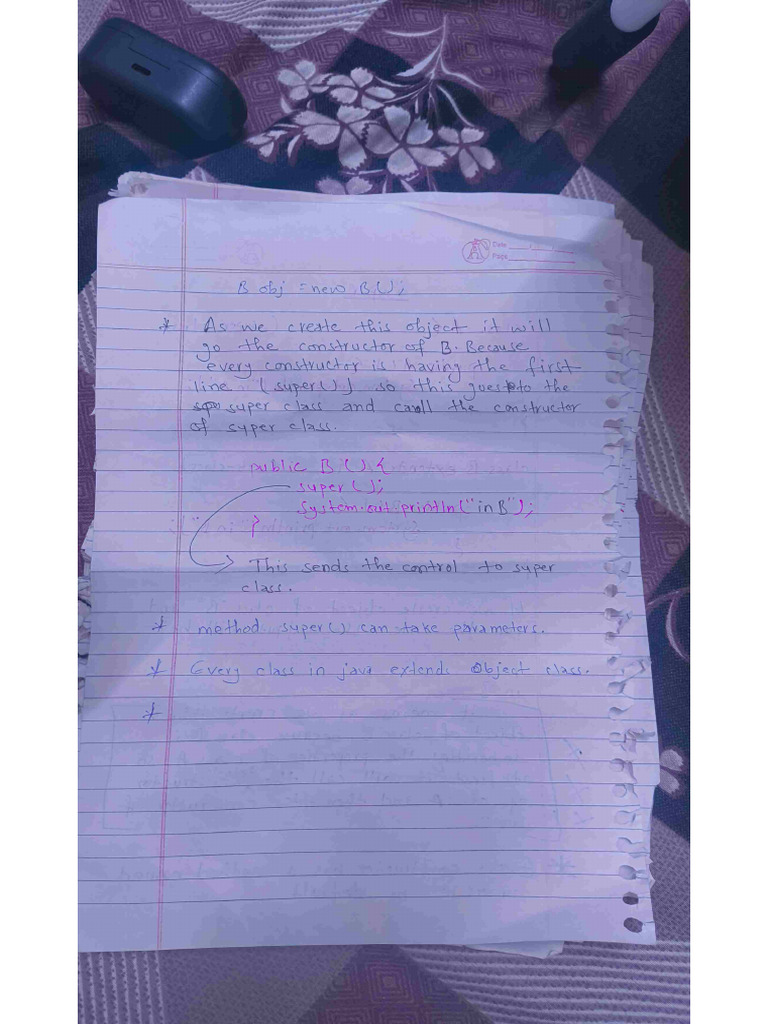 Date
Page
B obj = new B();
* As we create this object it will
go the constructor of B. Because
every constructor is having the first
line (super()) so this goes to the
super class and call the constructor
of super class.
public B() {
super();
System.out.println("in B");
}
→ This sends the control to super
class.
* method super() can take parameters.
* Every class in java extends Object class.
*